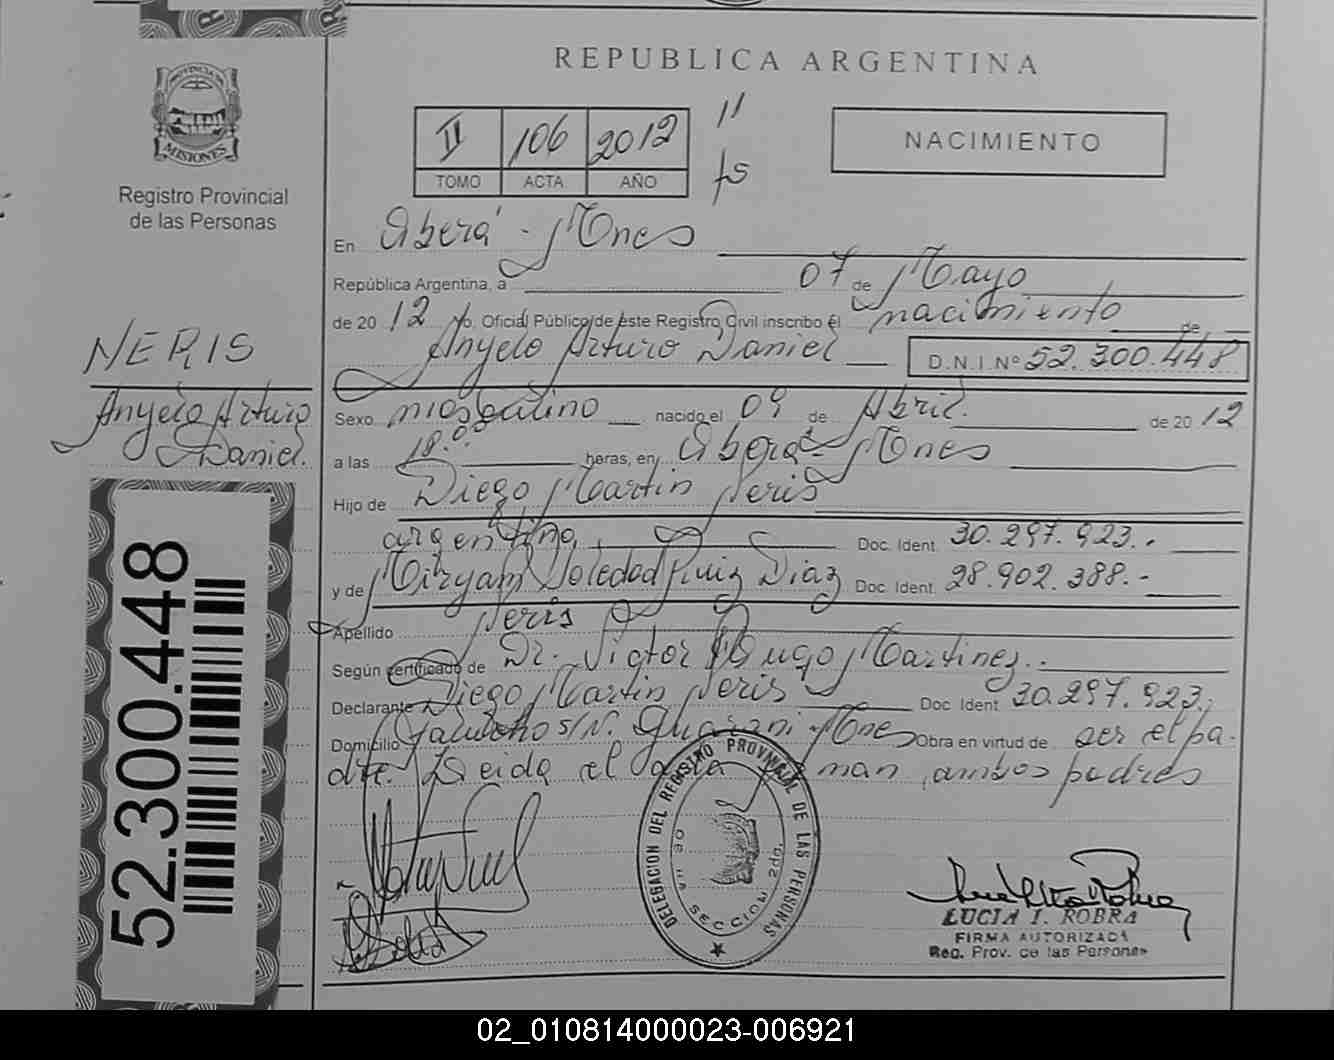 REPUBLICA ARGENTINA
PROVINCIA DE
MISIONES
Registro Provincial
de las Personas
II 106 2012
TOMO ACTA AÑO
11
fs
NACIMIENTO
En Oberá - Mnes
República Argentina, a 07 de Mayo
de 20 12 Yo, Oficial Público de este Registro Civil inscribo el nacimiento de
Anyelo Arturo Daniel D.N.I. Nº 52.300.448
NERIS
Anyelo Arturo
Daniel.
Sexo masculino nacido el 09 de Abril. de 20 12
a las 18.00 horas, en Oberá - Mnes
Hijo de Diego Martin Neris
argentino, Doc. Ident. 30.297.923.-
y de Miryam Soledad Ruiz Diaz Doc. Ident. 28.902.388.-
Apellido Neris
Según certificado de Dr. Victor Hugo Martinez.
Declarante Diego Martin Neris Doc. Ident. 30.297.923.
Domicilio s/N. Guarani - Mnes Obra en virtud de ser el pa-
dre. Leida el acta firman, ambos padres
52.300.448
DELEGACION DEL REGISTRO PROVINCIAL DE LAS PERSONAS
SECCION 2da.
LUCIA I. ROBRA
FIRMA AUTORIZADA
Reg. Prov. de las Personas
02_010814000023-006921